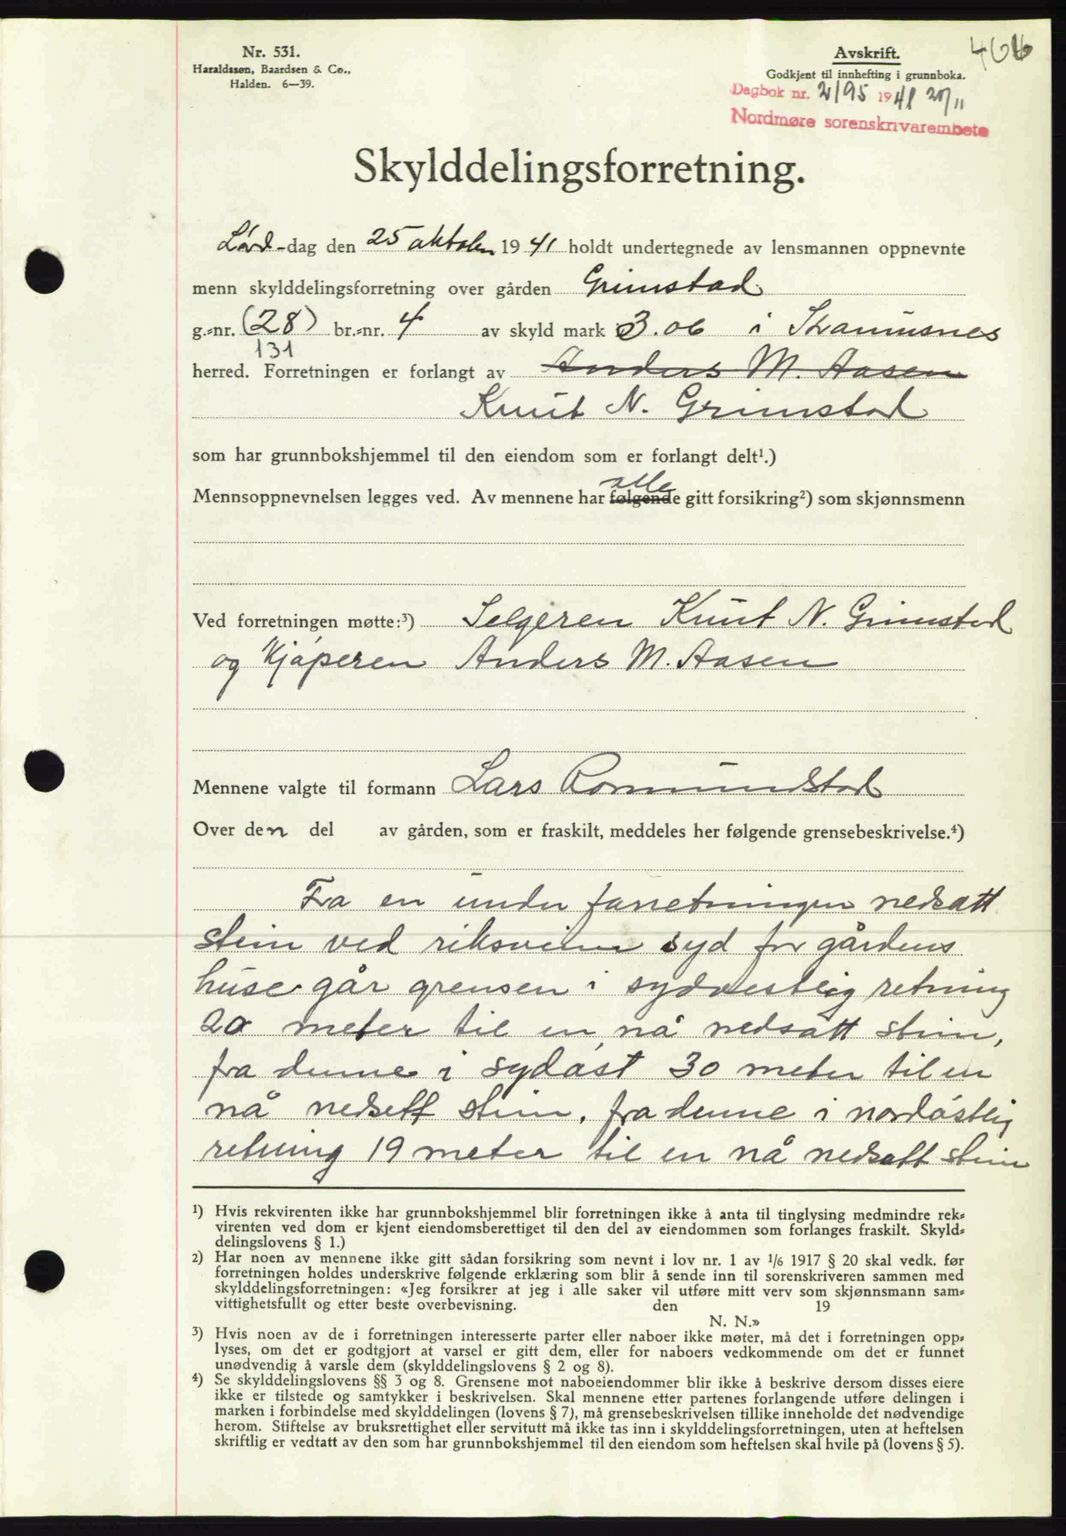 Nr. 531.
Haraldssen, Baardsen & Co.,
Halden. 6—39.
Avskrift.
Godkjent til innhefting i grunnboka.
Dagbok nr. 2195 1941 20/11
Nordmøre sorenskrivarembete
Skylddelingsforretning.
Lørd-dag den 25 oktober 1941 holdt undertegnede av lensmannen oppnevnte
menn skylddelingsforretning over gården Grimstad
g.-nr. (28) br.-nr. 4 av skyld mark 3.06 i Straumsnes
131
herred. Forretningen er forlangt av Anders M. Aasen
Knut N. Grimstad
som har grunnbokshjemmel til den eiendom som er forlangt delt¹.)
alle
Mennsoppnevnelsen legges ved. Av mennene har følgende gitt forsikring²) som skjønnsmenn
Ved forretningen møtte:³) Selgeren Knut N. Grimstad
og kjøperen Anders M. Aasen
Mennene valgte til formann Lars Romundstad
Over den del av gården, som er fraskilt, meddeles her følgende grensebeskrivelse.⁴)
Fra en under forretningen nedsatt
stein ved riksveien syd for gårdens
huse går grensen i sydvestlig retning
20 meter til en nå nedsatt stein,
fra denne i sydøst 30 meter til en
nå nedsett stein, fra denne i nordøstlig
retning 19 meter til en nå nedsatt stein
¹) Hvis rekvirenten ikke har grunnbokshjemmel blir forretningen ikke å anta til tinglysing medmindre rek-
virenten ved dom er kjent eiendomsberettiget til den del av eiendommen som forlanges fraskilt. Skyld-
delingslovens § 1.)
²) Har noen av mennene ikke gitt sådan forsikring som nevnt i lov nr. 1 av 1/6 1917 § 20 skal vedk. før
forretningen holdes underskrive følgende erklæring som blir å sende inn til sorenskriveren sammen med
skylddelingsforretningen: «Jeg forsikrer at jeg i alle saker vil utføre mitt verv som skjønnsmann sam-
vittighetsfullt og etter beste overbevisning. den 19
N. N.»
³) Hvis noen av de i forretningen interesserte parter eller naboer ikke møter, må det i forretningen opp-
lyses, om det er godtgjort at varsel er gitt dem, eller for naboers vedkommende om det er funnet
unødvendig å varsle dem (skylddelingslovens § 2 og 8).
⁴) Se skylddelingslovens §§ 3 og 8. Grensene mot naboeiendommer blir ikke å beskrive dersom disses eiere
ikke er tilstede og samtykker i beskrivelsen. Skal mennene etter partenes forlangende utføre delingen i
marken i forbindelse med skylddelingen (lovens § 7), må grensebeskrivelsen tillike inneholde det nødvendige
herom. Stiftelse av bruksrettighet eller servitutt må ikke tas inn i skylddelingsforretningen, uten at heftelsen
skriftlig er vedtatt av den som har grunnbokshjemmel til den eiendom som heftelsen skal hvile på (lovens § 5).